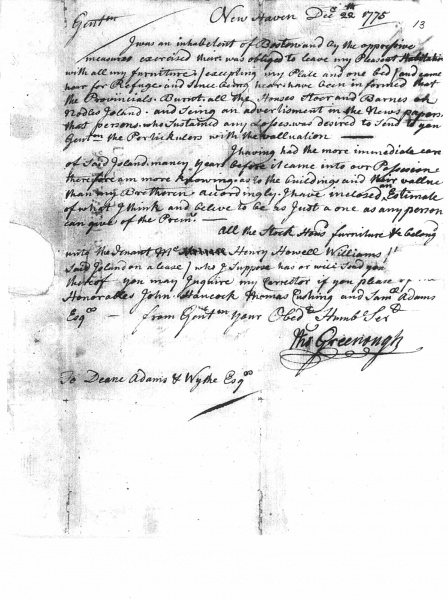 New Haven Decr 22th 1775
13
Gentmn
I was an inhabetent of Boston and by the oppresive
measures exercised there was obliged to leave my Pleasent Habitation
with all my furniture (excepting my Plate and one bed) and came
hear for Refuge and Since being hear have been informed that
the Provincials Burnt all the Houses Stoor and Barnes on
Nodles Island and Seing an advertisment in the News papers
that persons who Sustained any Losses was desired to Send to you
Gentmn the Pertickulers with the valluation
I having had the more immediate care
of Said Island maney years before it came into our Possession
therefore am more knowing as to the buildings and their vallue
than my Brethoren accordingly I have inclosed an Estimate
of what I think and belive to be as Just a one as any person
can give of the Premes
All the Stock Hows furniture &c belong
unto the Tenant Mr Henry Howell Williams
Said Island on a lease) who I Suppose has or will Send you
thereof you may Inquire my Carrector if you please of
Honorables John Hancock Thomas Cushing and Saml Adams
Esqrs — from Gentmn your Obedt Humbl Sert
Thos Greenough
To Deane Adams & Wythe Esqrs